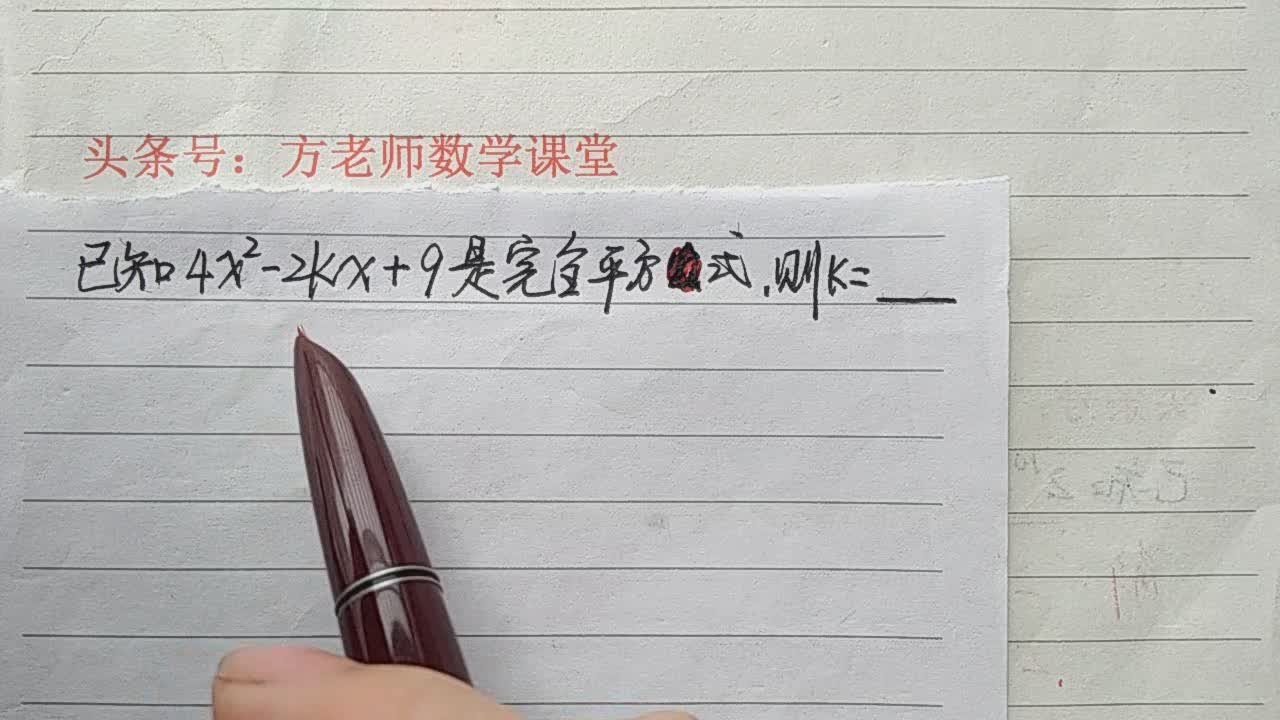 头条号：方老师数学课堂
已知4x²-2kx+9是完全平方式,则k=____